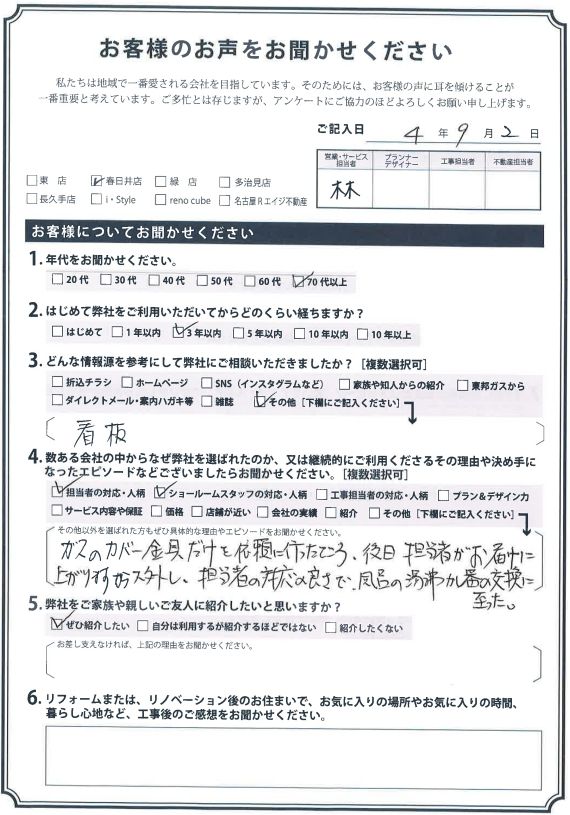 お客様のお声をお聞かせください
私たちは地域で一番愛される会社を目指しています。そのためには、お客様の声に耳を傾けることが
一番重要と考えています。ご多忙とは存じますが、アンケートにご協力のほどよろしくお願い申し上げます。
ご記入日 4 年 9 月 2 日
営業・サービス担当者 プランナーデザイナー 工事担当者 不動産担当者
林
□東 店 ☑春日井店 □緑 店 □多治見店
□長久手店 □i・Style □reno cube □名古屋Rエイジ不動産
お客様についてお聞かせください
1. 年代をお聞かせください。
□20代 □30代 □40代 □50代 □60代 ☑70代以上
2. はじめて弊社をご利用いただいてからどのくらい経ちますか？
□はじめて □1年以内 ☑3年以内 □5年以内 □10年以内 □10年以上
3. どんな情報源を参考にして弊社にご相談いただきましたか？［複数選択可］
□折込チラシ □ホームページ □SNS（インスタグラムなど） □家族や知人からの紹介 □東邦ガスから
□ダイレクトメール・案内ハガキ等 □雑誌 ☑その他［下欄にご記入ください］
看板
4. 数ある会社の中からなぜ弊社を選ばれたのか、又は継続的にご利用くださるその理由や決め手に
なったエピソードなどございましたらお聞かせください。［複数選択可］
☑担当者の対応・人柄 ☑ショールームスタッフの対応・人柄 □工事担当者の対応・人柄 □プラン＆デザイン力
□サービス内容や保証 □価格 □店舗が近い □会社の実績 □紹介 □その他［下欄にご記入ください］
その他以外を選ばれた方もぜひ具体的な理由やエピソードをお聞かせください。
ガスのカバー金具だけを依頼に行ったところ、後日担当者がお届けに
上がりますからスタートし、担当者の対応の良さで、風呂の湯沸カシ器の交換に
至った。
5. 弊社をご家族や親しいご友人に紹介したいと思いますか？
☑ぜひ紹介したい □自分は利用するが紹介するほどではない □紹介したくない
お差し支えなければ、上記の理由をお聞かせください。
6. リフォームまたは、リノベーション後のお住まいで、お気に入りの場所やお気に入りの時間、
暮らし心地など、工事後のご感想をお聞かせください。